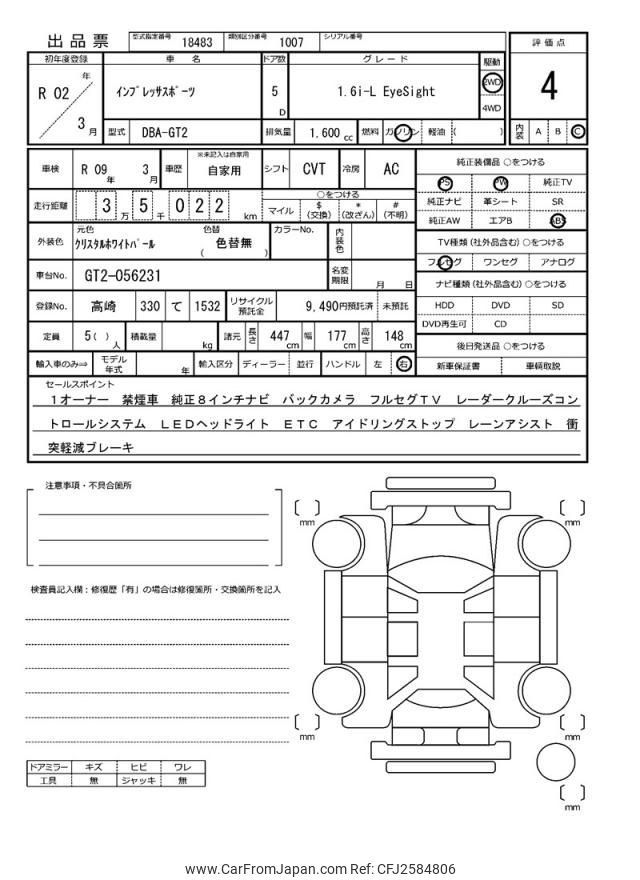 出品票 型式指定番号 18483 類別区分番号 1007 シリアル番号
初年度登録 車名 ドア数 グレード 駆動 評価点
R 02 年 3 月 ｲﾝﾌﾟﾚｯｻｽﾎﾟｰﾂ 5 D 1.6i-L EyeSight 2WD 4WD 4
型式 DBA-GT2 排気量 1,600 cc 燃料 ガソリン 軽油 ( ) 内装 A B C
車検 R 09 年 3 月 車歴 ※未記入は自家用 自家用 シフト CVT 冷房 AC 純正装備品 ○をつける
PS PW 純正TV
走行距離 3 万 5 千 0 2 2 km ○をつける 純正ナビ 革シート SR
マイル $ (交換) * (改ざん) # (不明) 純正AW エアB ABS
外装色 元色 ｸﾘｽﾀﾙﾎﾜｲﾄﾊﾟｰﾙ 色替 ( 色替無 ) カラーNo. 内装色 TV種類 (社外品含む) ○をつける
フルセグ ワンセグ アナログ
車台No. GT2-056231 名変期限 月 日 ナビ種類 (社外品含む) ○をつける
登録No. 高崎 330 て 1532 リサイクル預託金 9,490円預託済 未預託 HDD DVD SD
DVD再生可 CD
定員 5 ( ) 人 積載量 kg 諸元 長さ 447 cm 幅 177 cm 高さ 148 cm 後日発送品 ○をつける
輸入車のみ⇒ モデル年式 年 輸入区分 ディーラー 並行 ハンドル 左 右 新車保証書 車輌取説
セールスポイント
１オーナー　禁煙車　純正８インチナビ　バックカメラ　フルセグＴＶ　レーダークルーズコン
トロールシステム　ＬＥＤヘッドライト　ＥＴＣ　アイドリングストップ　レーンアシスト　衝
突軽減ブレーキ
注意事項・不具合箇所
mm mm
検査員記入欄：修復歴「有」の場合は修復箇所・交換箇所を記入
mm mm
ドアミラー キズ ヒビ ワレ
工具 無 ジャッキ 無
mm
www.CarFromJapan.com Ref: CFJ2584806